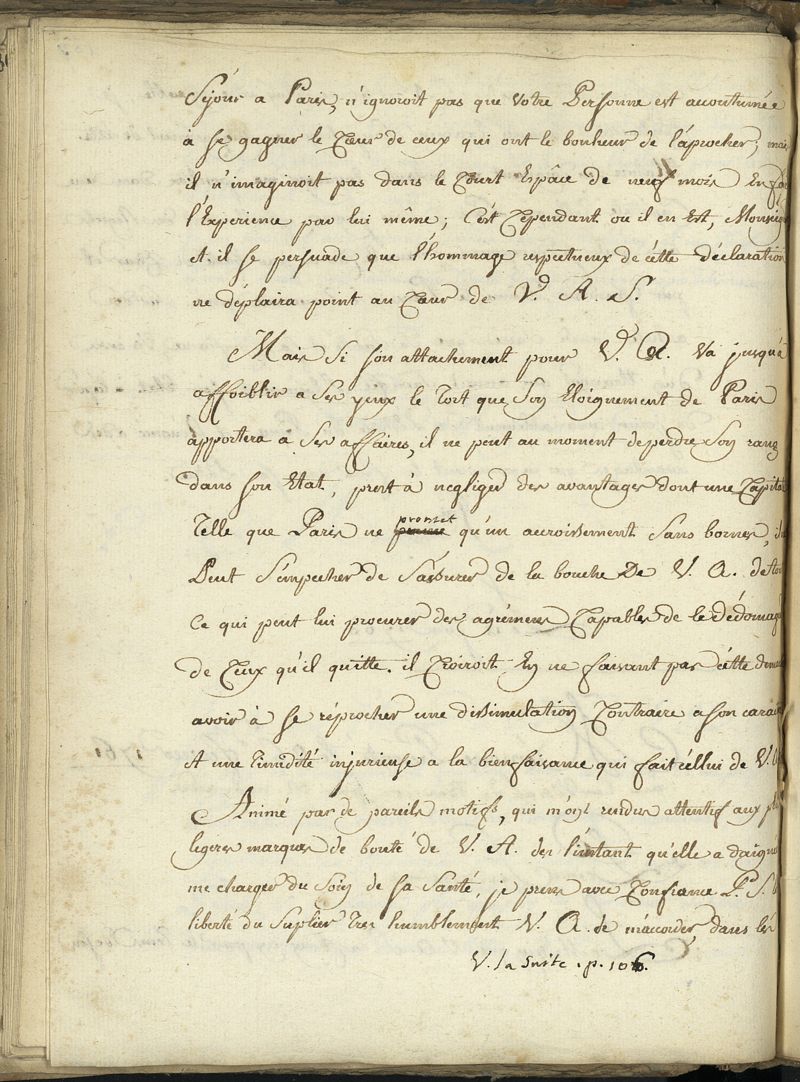 Séjour a Paris, n'ignoroit pas que Votre Personne est accoutumée
a se gagner le Cœur de ceux qui ont le bonheur de l'áprocher; mai
il n'imaginoit pas dans le Court Espâce de neuf mois En fai
l'Experience par lui même; C'ést Cependant ou il en Est, Monseig
Et il se persuade que l'hommage respectueux de cétte déclaration
ne déplaira point au Cœur de V. A. S.
Mais Si son attachement pour V. A. Va jusqu'a
affoiblir a Ses yeux le Tort que Son Eloignement de Paris
apportera à Ses affaires, il ne peut au moment de perdre Son rang
dans son Etat, prest à negliger des avantages dont une Capital
Telle que Paris ne promet qu'un accroissement Sans bornes, il
Peut S'empecher de S'assurer de la bouche De V. A. de tou
Ce qui peut lui procurer des agrémens Capables de le dédomag
de Ceux qu'il quitte. il Croiroit En ne faisant pas cétte dema
avoir à se réprocher une dissimulation Contraire a son caract
Et une Timidité injurieuse a la bienfaisance qui fait céllui de V.
Animé par de pareils motifs, qui m'ont rendus attentif aux pl
legeres marques de bonté de V. A. des l'instant qu'elle a daigné
me charger du Soin de sa Santé, je prens avec Confiance P. S. l
liberté du Suplier Tres humblement V. A. de m'accorder, dans lés
V. la suite. p. 106.